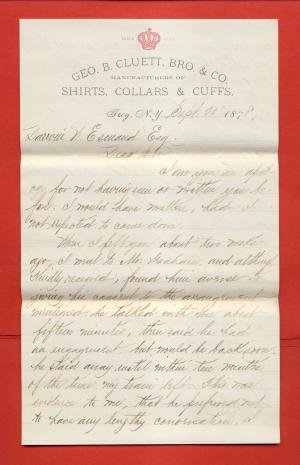 GEO. B. CLUETT, BRO. & CO.
MANUFACTURERS OF
SHIRTS, COLLARS & CUFFS.
Troy, N.Y. Sept. 20 1878
Esq.
Dear Sir
I owe you an apol
ogy for not having seen or written you be-
fore. I would have written, had I
not expected to come down.
When I left you about two weeks
ago, I went to Mr. Graham, and although
kindly received, found him averse to
giving his consent to the arrangement
mentioned. he talked with me about
fifteen minutes, then said he had
an engagement, but would be back soon.
he staid away until within ten minutes
of the time my train left. This was
evidence to me, that he preferred not
to have any lengthy conversation. I